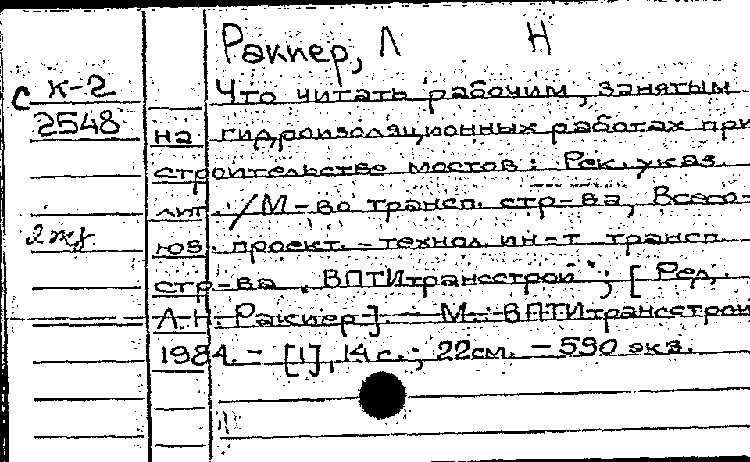 Ракиер, Л Н
с К-2
2548
2 экз
Что читать рабочим, занятым
на гидроизоляционных работах при
строительстве мостов: Рек. указ.
лит. / М-во трансп. стр-ва, Всесо-
юз. проект.-технол. ин-т трансп.
стр-ва "ВПТИтрансстрой"; [Ред.
Л.Н. Ракиер]. - М.: ВПТИтрансстрой
1984. - [1], 14 с.; 22 см. - 590 экз.